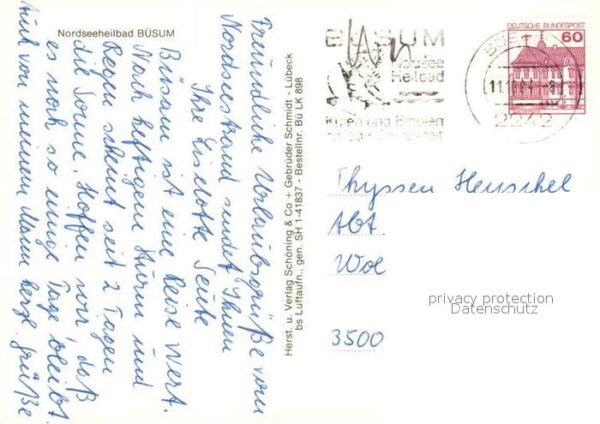 Nordseeheilbad BÜSUM
Freundliche Urlaubsgrüße vom
Nordseestrand sendet Ihnen
Ihre Liselotte Seute
Büsum ist eine Reise wert.
Nach heftigem Sturm und
Regen scheint seit 2 Tagen
die Sonne. Hoffen wir, daß
es noch so einige Tage bleibt.
Auch von meinem Mann herzl. Grüße
Herst. u. Verlag Schöning & Co + Gebrüder Schmidt - Lübeck
bs Luftaufn., gen. SH 1-41837 - Bestellnr. Bü LK 898
BÜSUM
Nordsee
Heilbad
Kuren und Erholen
DEUTSCHE BUNDESPOST
60
2242
Thyssen Henschel
Abt
3500
privacy protection
Datenschutz